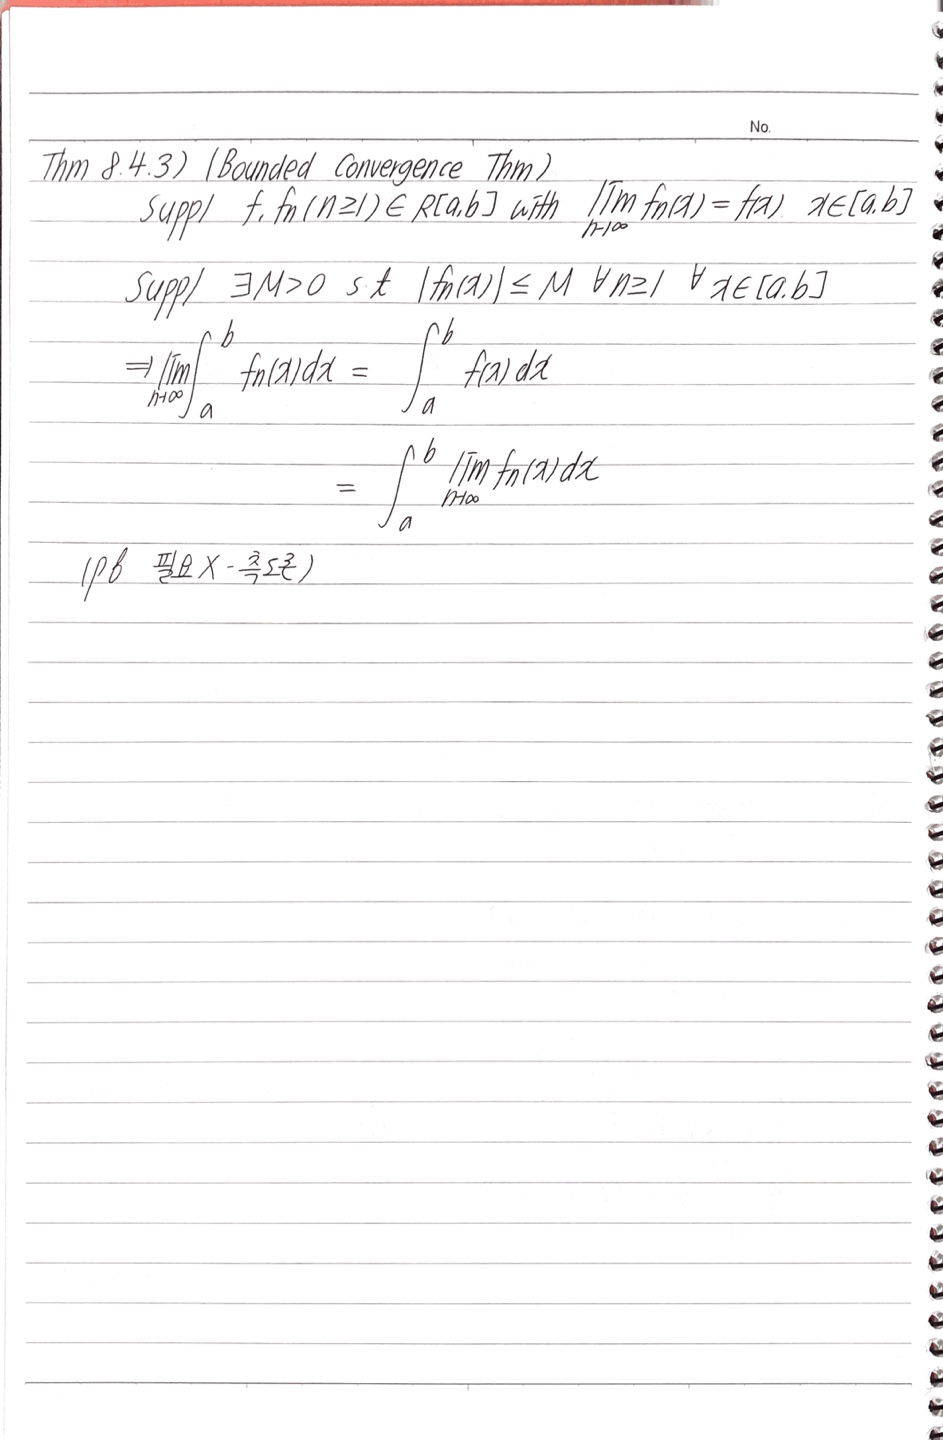 No.
Thm 8.4.3) (Bounded Convergence Thm)
Supp/ f, fn(n≥1) ∈ R[a,b] with lim n→∞ fn(x) = f(x) x∈[a,b]
Supp/ ∃M>0 s.t |fn(x)| ≤ M ∀n≥1 ∀x∈[a,b]
⇒ lim n→∞ ∫_a^b fn(x)dx = ∫_a^b f(x)dx
= ∫_a^b lim n→∞ fn(x)dx
(pf 필요X - 측도론)